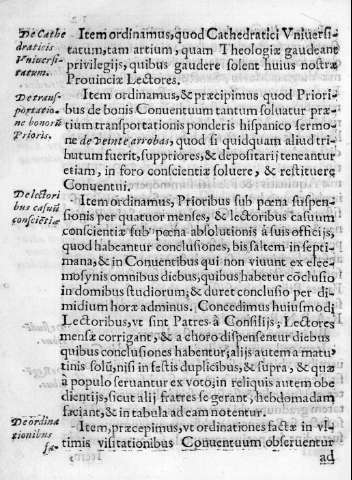 De Cathe
draticis
Vniuersi-
tatum.
Item ordinamus, quod Cathedratici Vniuersi-
tatum, tam artium, quam Theologiæ gaudeant
priuilegijs, quibus gaudere solent huius nostræ
Prouinciæ Lectores.
De trans-
portatio-
ne bonorũ
Prioris.
Item ordinamus, & præcipimus quod Priori-
bus de bonis Conuentuum tantum soluatur præ-
tium transportationis ponderis hispanico sermo-
ne de veinte arrobas, quod si quidquam aliud tri-
butum fuerit, suppriores, & depositarij teneantur
etiam, in foro conscientiæ soluere, & restituere
Conuentui.
De lectori
bus casuũ
conscietiæ
Item ordinamus, Prioribus sub pœna suspen-
sionis per quatuor menses, & lectoribus casuum
conscientiæ sub pœna absolutionis à suis officijs,
quod habeantur conclusiones, bis saltem in septi-
mana, & in Conuentibus qui non viuunt ex elee-
mosynis omnibus diebus, quibus habetur cõclusio
in domibus studiorum; & duret conclusio per di-
midium horæ ad minus. Concedimus huiusmodi
Lectoribus, vt sint Patres à Consilijs; Lectores
mensæ corrigant, & a choro dispensentur diebus
quibus conclusiones habentur; alijs autem a matu-
tinis solũ, nisi in festis duplicibus, & supra, & quæ
à populo seruantur ex voto, in reliquis autem obe
dientijs, sicut alij fratres se gerant, hebdomadam
faciant, & in tabula ad eam notentur.
De ordina
tionibus
fa-
Item, præcepimus, vt ordinationes factæ in vl-
timis visitationibus Conuentuum obseruentur
ad